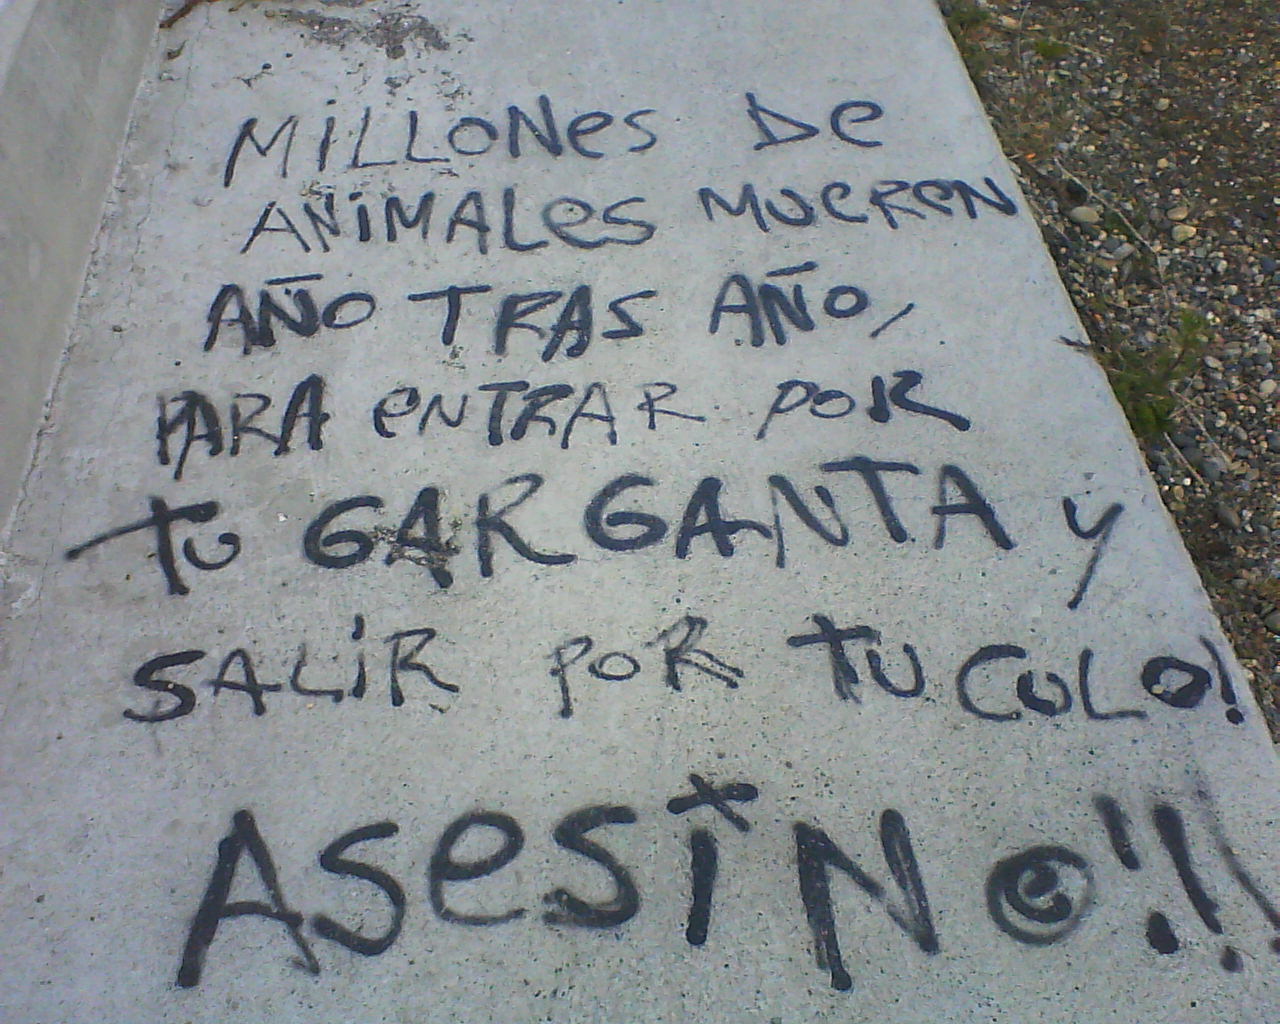 MiLLONes De
ANiMALes MUeReN
AÑO TRAS AÑO,
PARA eNTRAR POR
TU GARGANTA y
SALiR POR TU CULO!
ASesiN@!!!